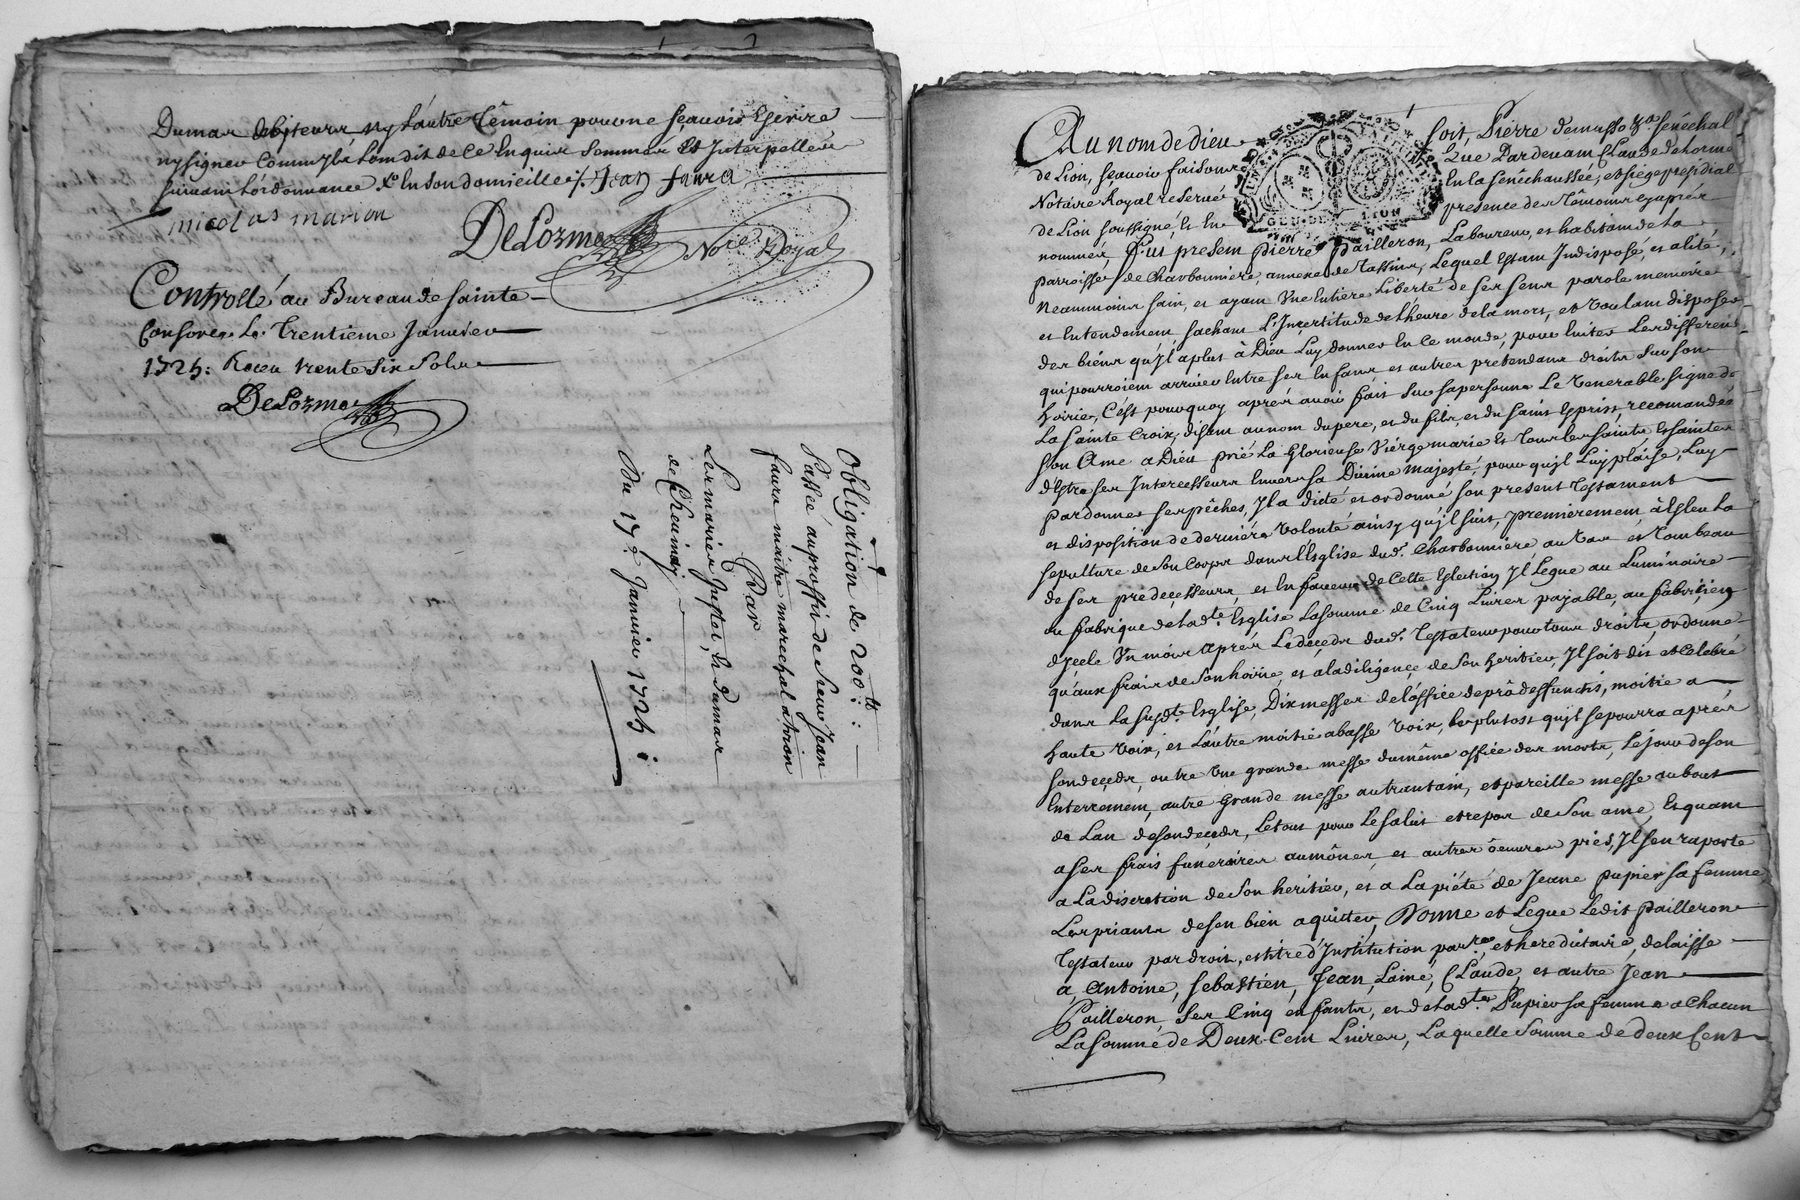 Dumas debiteurs ny L'autre têmoin pour ne sçavoir Escrire
ny signer Comm'ils L'ont dit de Ce Enquis Sommés Et Interpellés
suivant L'ordonnance Et En son domicille /. Jean faura
nicolas marion
DeLorme Not.re Royal
Controllé au Bureau de Sainte
Consorce Le Trentieme Janvier
1725: Receu trente six Sols
DeLorme
Obligation de 200.lt :
Passée au proffit de sieur Jean
faura maitre marechal a
Par
Les mariés Justet, et Dumas
de
Du 17.e Janvier 1725 :
Au nom de Dieu soit, Pierre demusso Sénéchal
de Lion, sçavoir faisons Que Pardevant Claude delorme
Notaire Royal reservé En la senêchaussée, et siege presidial
de Lion soussigné, et En presence des Têmoins cy aprés
GEN.DE LION
nommés, Fut present Pierre Pailleron, Laboureur, et habitant de la
parroisse de Charbonniere, annexe de Tassins, Lequel Estant Indisposé, et alité,
Neanmoins sain, et ayant Une Entière Liberté de ses sens parole memoire
et Entendement sachant L'Incertitude de L'heure de la mort, et Voulant disposer
des biens qu'yl a plut à Dieu Luy donner En Ce monde, pour Eviter Les differends
qui pourroient arriver Entre ses Enfans et autres pretendans droits sur son
hoirie, C'est pourquoy aprés avoir fait sur sa personne Le Venerable signe de
La Sainte Croix, disant au nom du pere, et du fils, et du Saint Esprist, recomandé
son Ame a Dieu prié La Glorieuse Viérge marie Et Tous les saints Et saintes
d'Estre ses Intercesseurs Envers sa Divine Majesté, pour qu'yl Luy plaise, Luy
pardonner ses pêchés, Yl a dicté et ordonné son present Testament
et disposition de derniére Volonté ainsy qu'yl suit, premièrement à Esleu La
sepulture de son Corps dans L'Esglise dud.t Charbonniére au Vas et Tombeau
de ses predecesseurs, et En faveur de Cette Eslection Yl Legue au Luminaire
ou fabrique de lad.te Esglise La somme de Cinq Livres payable, au fabricien
d'ycele Un mois aprés Le decéds dud.t Testateur pour tous droits, ordonne
qu'aux frais de son hoirie, et a la diligence, de son heritier, Yl soit dit et Celebré
dans La susd.te Esglise, Dix messes de l'office de pro deffunctis, moitié a
haute Voix, et L'autre moitié a basse Voix, Le plutost qu'yl se pourra aprés
son decéds, outre Une grande messe du même office des morts, Le jour de son
Enterrement, autre Grande messe au trantain, et pareille messe au bout
de L'an de son decéds, Le tout pour Le salut et repos de Son ame, Et quant
a ses frais funéraires aumônes, et autres oeuvres pies, Yl s'en raporte
a La discretion de Son heritier, et a La piété de Jeane Pupier sa femme
Les priants de s'en bien aquitter, Donne et Legue Ledit Pailleron
Testateur par droit, et titre d'Institution par.re et hereditaire, delaisse
à Antoine, Sebastien, Jean L'ainé, Claude, et autre Jean
Pailleron, Ses Cinq enfants, et de lad.te Pupier sa femme a Chacun
La Somme de Deux Cent Livres, Laquelle Somme de deux Cent